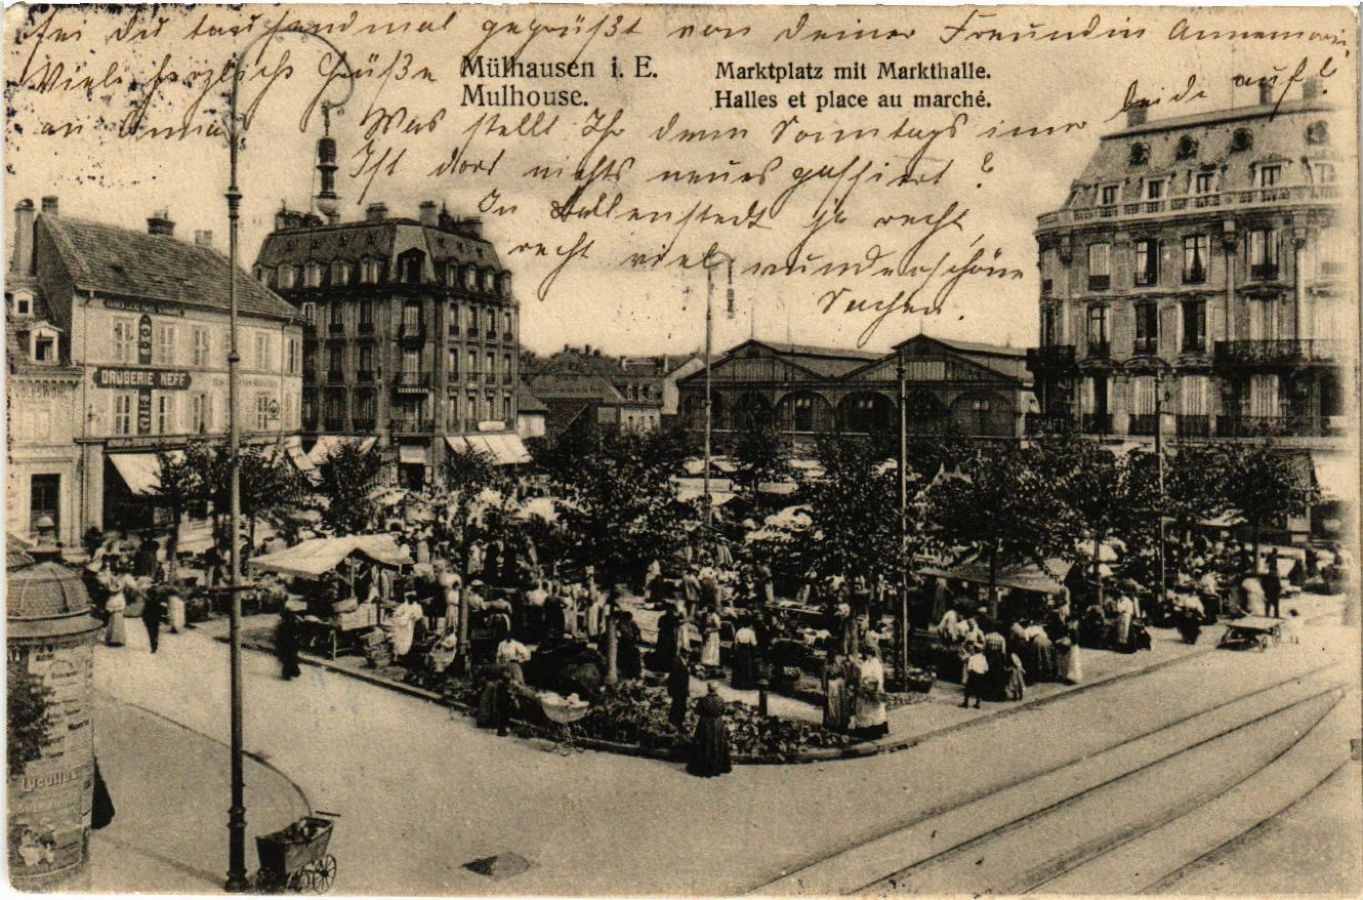 sei du tausendmal gegrüßt von deiner Freundin Annemarie
Viele herzliche Grüße
an Anna
Mülhausen i. E.
Mulhouse.
Marktplatz mit Markthalle.
Halles et place au marché.
Was stellt Ihr denn Sonntags immer beide auf?
Ist dort nichts neues passiert?
In Ballenstedt ja recht,
recht viel wunderschöne
Sachen.
DROGERIE NEFF
Lucullus